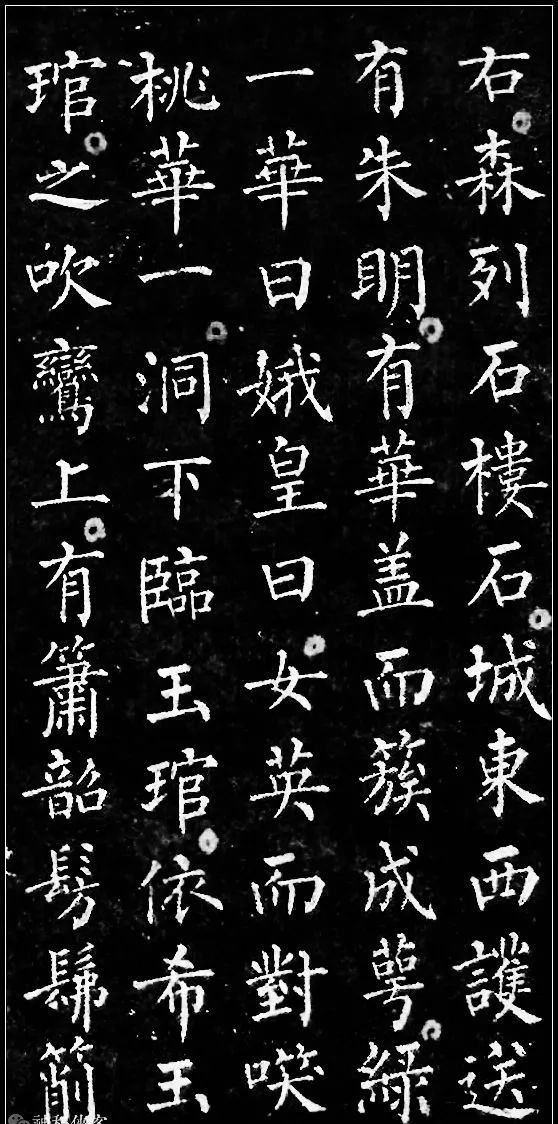 右森列石樓石城東西護送
有朱明有華盖而簇成萼綠
一華曰娥皇曰女英而對喫
桃華一洞下臨玉琯依希玉
琯之吹鸞上有簫韶髣髴簡